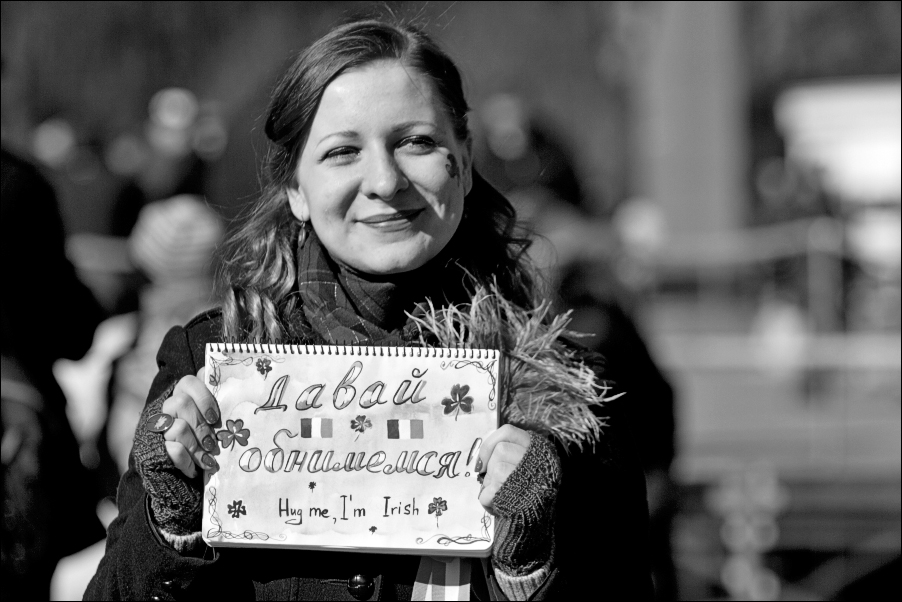 Давай
обнимемся!
Hug me, I'm Irish